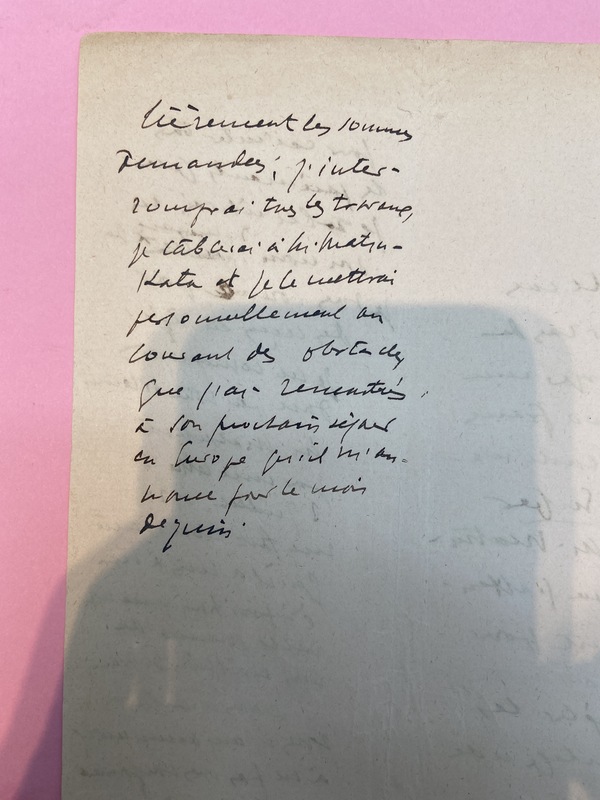 tièrement les sommes
demandées; j'inter-
romprai tous les travaux,
je câblerai à M. Matsu-
kata et je le mettrai
personnellement au
courant des obstacles
que j'ai rencontrés
à son prochain séjour
en Europe qu'il m'an-
nonce pour le mois
de juin.